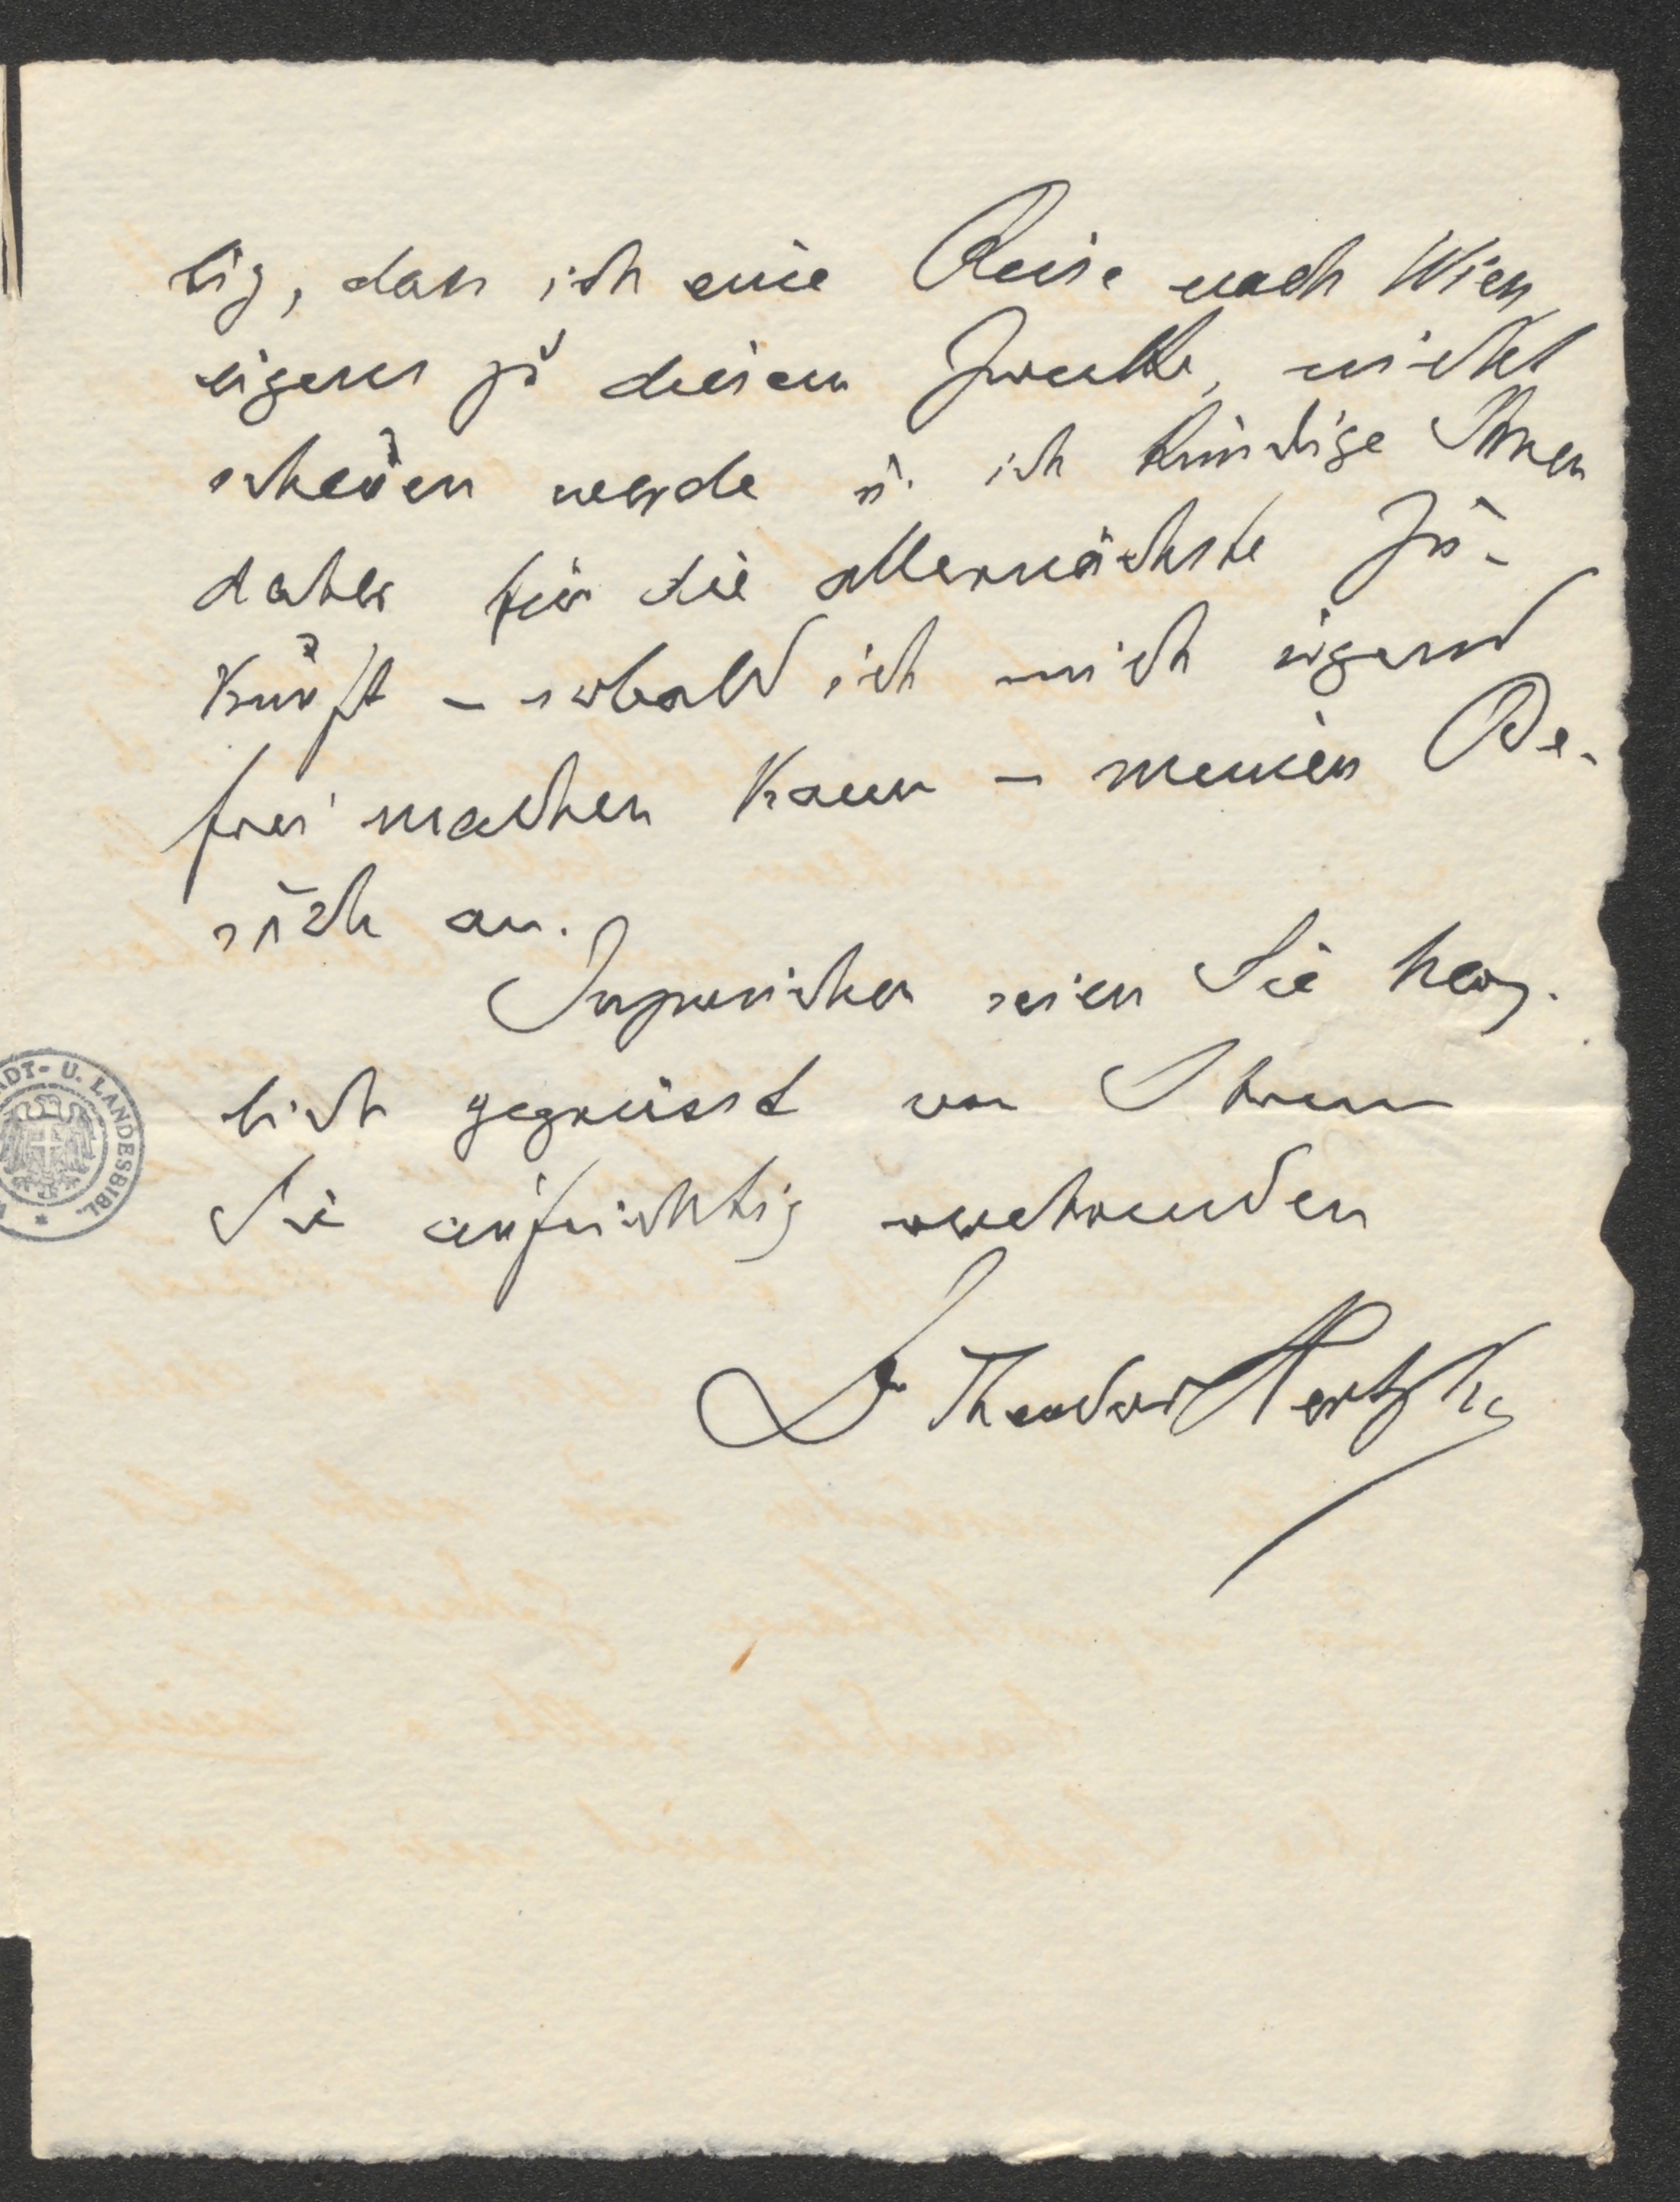 tig, dass ich eine Reise nach Wien,
eigens zu diesem Zwecke, nicht
scheuen werde u. ich kündige Ihnen
daher für die allernächste Zu-
kunft – sobald ich mich irgend
frei machen kann – meinen Be-
such an.
Inzwischen seien Sie herz-
lich gegrüsst von Ihrem
Sie aufrichtig verehrenden
Dr Theodor Hertzka
ADT- U. LANDESBIBL.